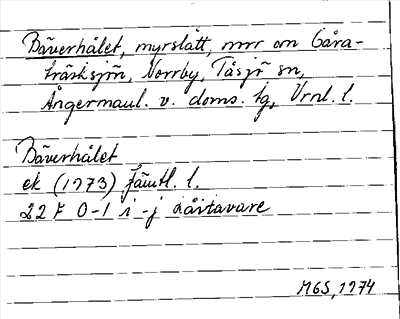 Bäverhålet, myrslått, nnr om Gåra-
träsksjön, Norrby, Tåsjö sn,
Ångermanl. v. doms. tg, Vrnl. l.
Bäverhålet
ek (1973) Jämtl. l.
22 F 0-1 i-j Dåitavare
MGS, 1974